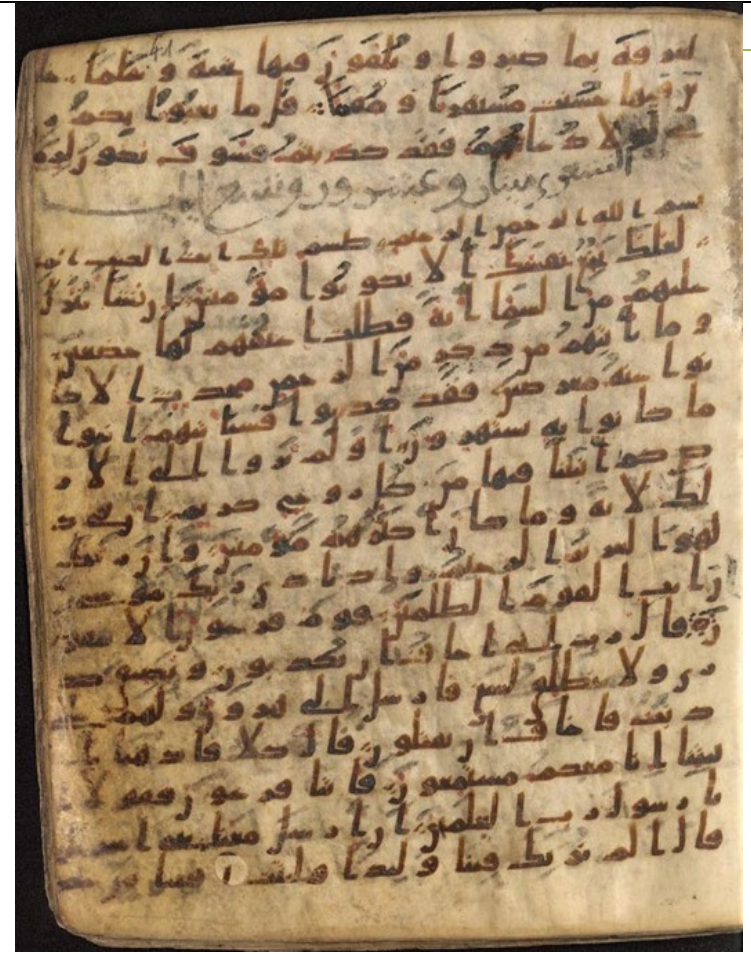 41
لغرفة بما صبروا و يلقون فيها تحية و سلما خلد
ين فيها حسنت مستقرا و مقاما قل ما يعبوا بكم ر
بى لولا دعاوكم فقد كذبتم فسوف يكون لزاما
الشعرى ميتان وعشرون وسبع ايات
بسم الله الرحمن الرحيم طسم تلك ايت الكتب المبين
لعلك بخع نفسك الا يكونوا مومنين ان نشا ننزل
عليهم من السما اية فظلت اعنقهم لها خضعين
و ما ياتيهم من ذكر من الرحمن محدث الا كا
نوا عنه معرضين فقد كذبوا فسياتيهم انبوا
ما كانوا به يستهزون اولم يروا الى الار
كم انبتنا فيها من كل زوج كريم ان فى ذ
لك لاية و ما كان اكثرهم مومنين و ان ربك
لهو العزيز الرحيم و اذ نادى ربك موسى
ان ايت القوم الظلمين قوم فرعون الا يتقو
ن قال رب انى اخاف ان يكذبون و يضيق صد
رى و لا ينطلق لسنى فارسل الى هرون و لهم على
ذنب فاخاف ان يقتلون قال كلا فاذهبا با
يتنا انا معكم مستمعون فاتيا فرعون فقولا ا
نا رسول رب العلمين ان ارسل معنا بنى اسر
قال الم نربك فينا وليدا و لبثت فينا من عمر